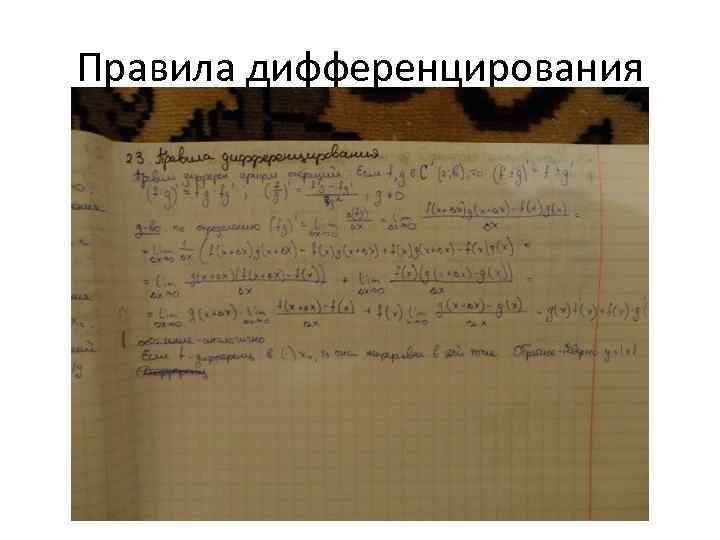 Правила дифференцирования
23. Правила дифференцирования
Правил дифферен арифм операций. Если f,g ∈ C' (a,b), то (f+g)' = f'+g'
(f·g)' = f'g+fg' ; (f/g)' = (f'g-fg')/g² , g≠0
д-во по определению (fg)' = lim Δx→0 Δ(fg)/Δx = lim Δx→0 (f(x+Δx)g(x+Δx)-f(x)g(x))/Δx =
= lim Δx→0 1/Δx (f(x+Δx)g(x+Δx)-f(x)g(x+Δx)+f(x)g(x+Δx)-f(x)g(x)) =
= lim Δx→0 g(x+Δx)(f(x+Δx)-f(x))/Δx + lim Δx→0 f(x)(g(x+Δx)-g(x))/Δx =
= lim Δx→0 g(x+Δx)·lim Δx→0 (f(x+Δx)-f(x))/Δx + f(x) lim Δx→0 (g(x+Δx)-g(x))/Δx = g(x)f'(x)+f(x)·g'
остальные-аналогично
Если f-дифференц в (·) x₀, то она непрерывна в этой точке. Обратное-неверно y=|x|